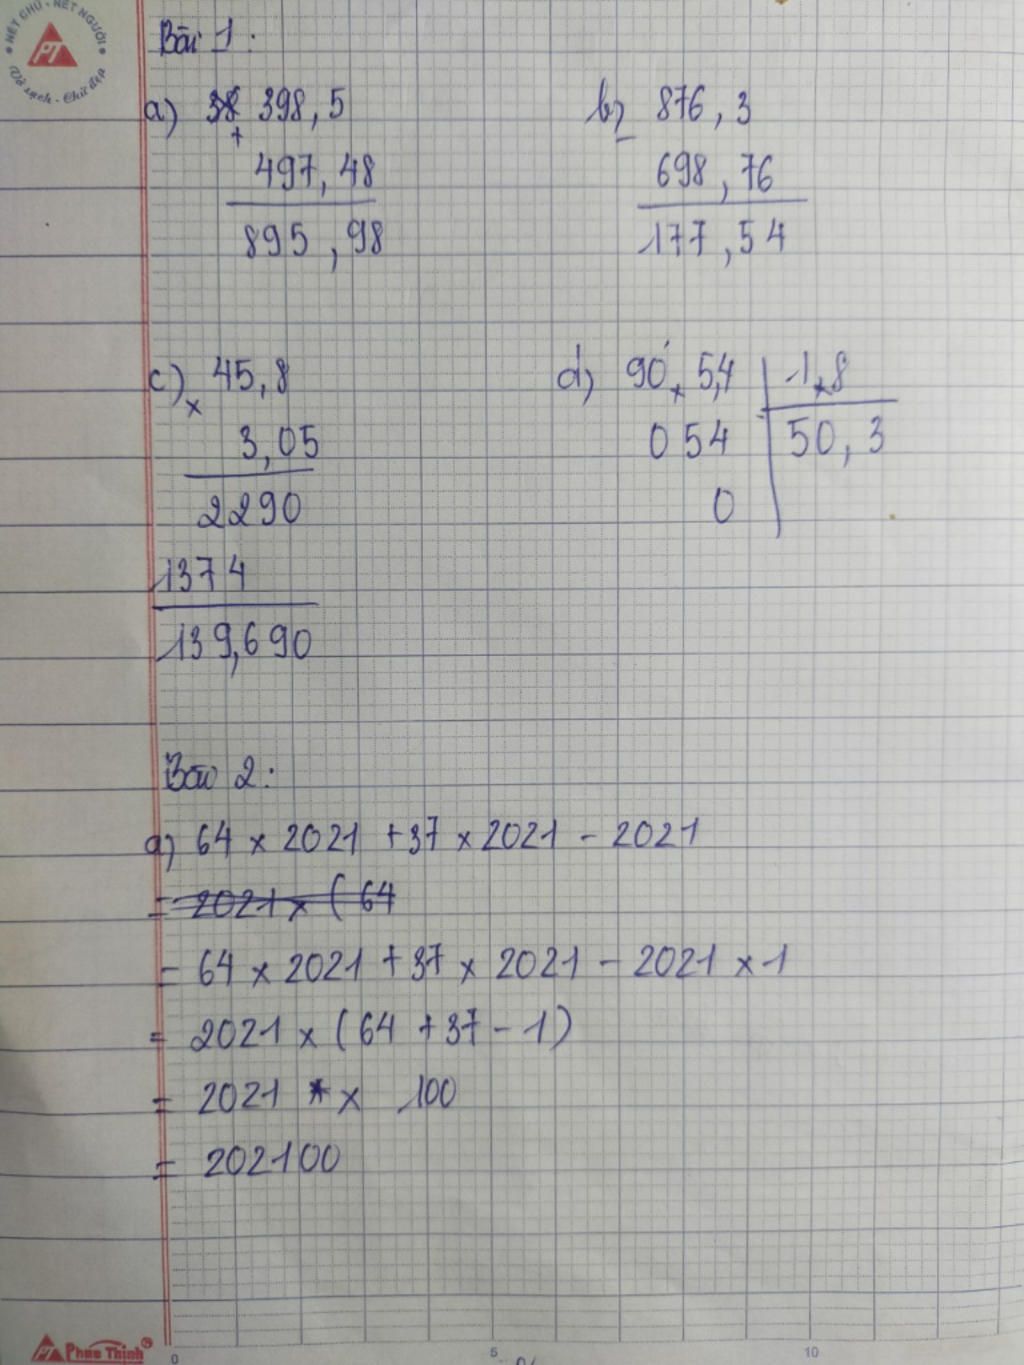 NÉT CHỮ - NẾT NGƯỜI
PT
Vở sạch - Chữ đẹp
Bài 1 :
a) 398,5
+
497,48
895,98
b) 876,3
-
698,76
177,54
c) 45,8
x
3,05
2290
1374
139,690
d) 90,5,4 1,8
054 50,3
0
Bài 2:
a) 64 x 2021 + 37 x 2021 - 2021
= 2021 x ( 64
= 64 x 2021 + 37 x 2021 - 2021 x 1
= 2021 x ( 64 + 37 - 1 )
= 2021 x 100
= 202100
PT Phúc Thịnh®
0 5 10